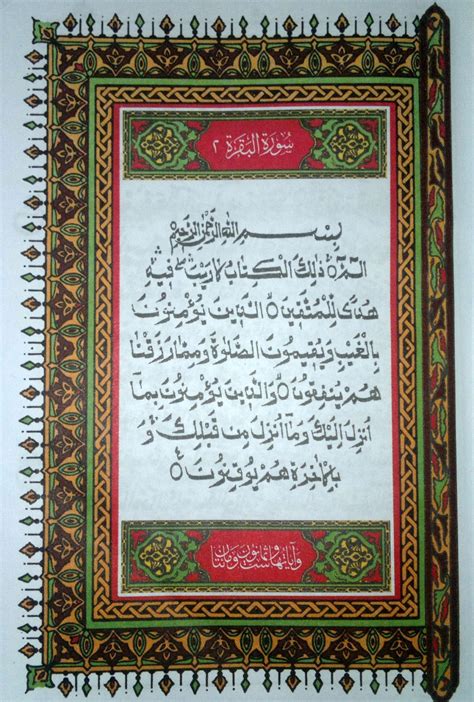 سُورَةُ البَقَرَة ٢
بِسْمِ اللهِ الرَّحْمٰنِ الرَّحِيْمِ
الٓمٓ ۝ ذٰلِكَ الْكِتَابُ لَا رَيْبَ ۛ فِيْهِ ۛ
هُدًى لِلْمُتَّقِيْنَ ۝ الَّذِيْنَ يُؤْمِنُوْنَ
بِالْغَيْبِ وَيُقِيْمُوْنَ الصَّلٰوةَ وَمِمَّا رَزَقْنٰ
هُمْ يُنْفِقُوْنَ ۝ وَالَّذِيْنَ يُؤْمِنُوْنَ بِمَآ
اُنْزِلَ اِلَيْكَ وَمَآ اُنْزِلَ مِنْ قَبْلِكَ وَ
بِالْاٰخِرَةِ هُمْ يُوْقِنُوْنَ ۝
وَآيَاتُهَا سِتٌّ وَثَمَانُونَ وَمِائَتَانِ